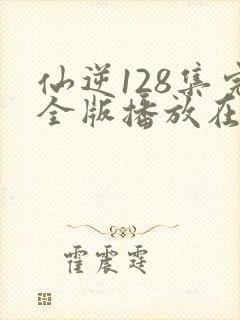 仙逆128集完
全版播放在
霍震霆